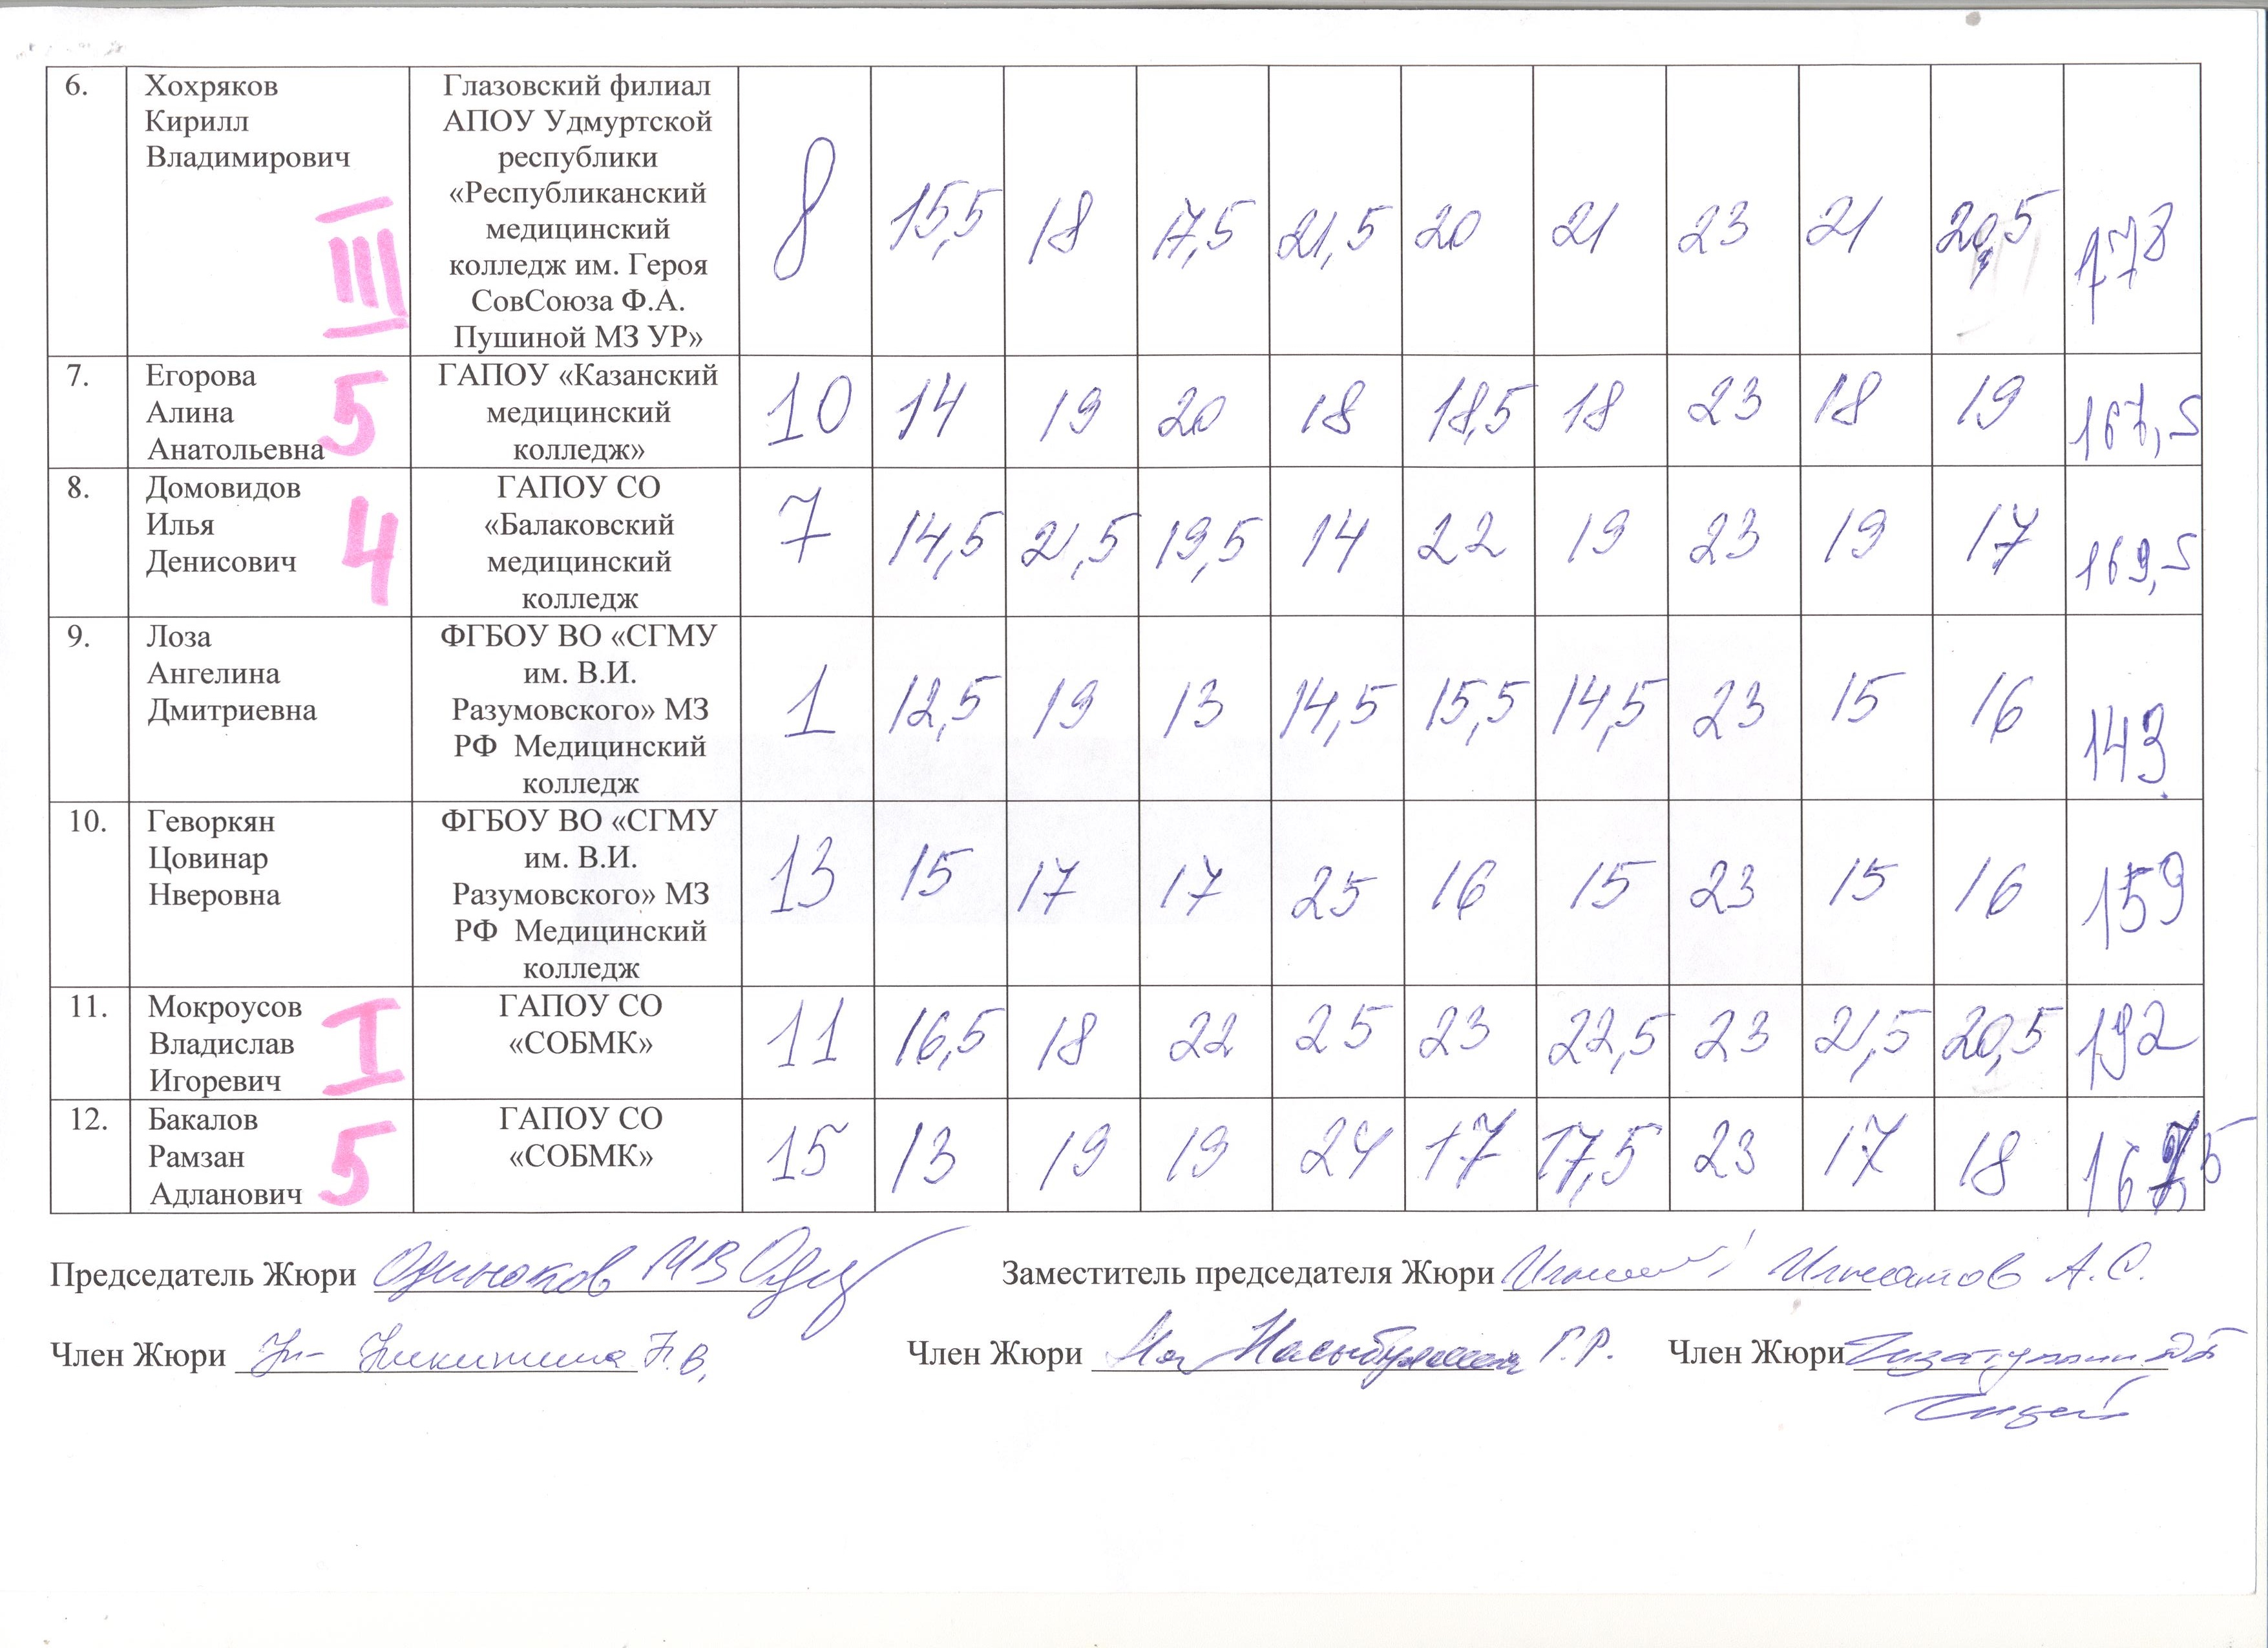 6.
Хохряков
Кирилл
Владимирович
III
Глазовский филиал
АПОУ Удмуртской
республики
«Республиканский
медицинский
колледж им. Героя
СовСоюза Ф.А.
Пушиной МЗ УР»
8 15,5 18 17,5 21,5 20 21 23 21 20,5 178
7.
Егорова
Алина
Анатольевна
5
ГАПОУ «Казанский
медицинский
колледж»
10 14 19 20 18 18,5 18 23 18 19 167,5
8.
Домовидов
Илья
Денисович
4
ГАПОУ СО
«Балаковский
медицинский
колледж
7 14,5 21,5 19,5 14 22 19 23 19 17 169,5
9.
Лоза
Ангелина
Дмитриевна
ФГБОУ ВО «СГМУ
им. В.И.
Разумовского» МЗ
РФ Медицинский
колледж
1 12,5 19 13 14,5 15,5 14,5 23 15 16 143
10.
Геворкян
Цовинар
Нверовна
ФГБОУ ВО «СГМУ
им. В.И.
Разумовского» МЗ
РФ Медицинский
колледж
13 15 17 17 25 16 15 23 15 16 159
11.
Мокроусов
Владислав
Игоревич
I
ГАПОУ СО
«СОБМК»
11 16,5 18 22 25 23 22,5 23 21,5 20,5 192
12.
Бакалов
Рамзан
Адланович
5
ГАПОУ СО
«СОБМК»
15 13 19 19 24 17 17,5 23 17 18 167,5
Председатель Жюри Одиноков МВ Заместитель председателя Жюри А.С.
Член Жюри Никитина Н.В. Член Жюри Г.Р. Член Жюри